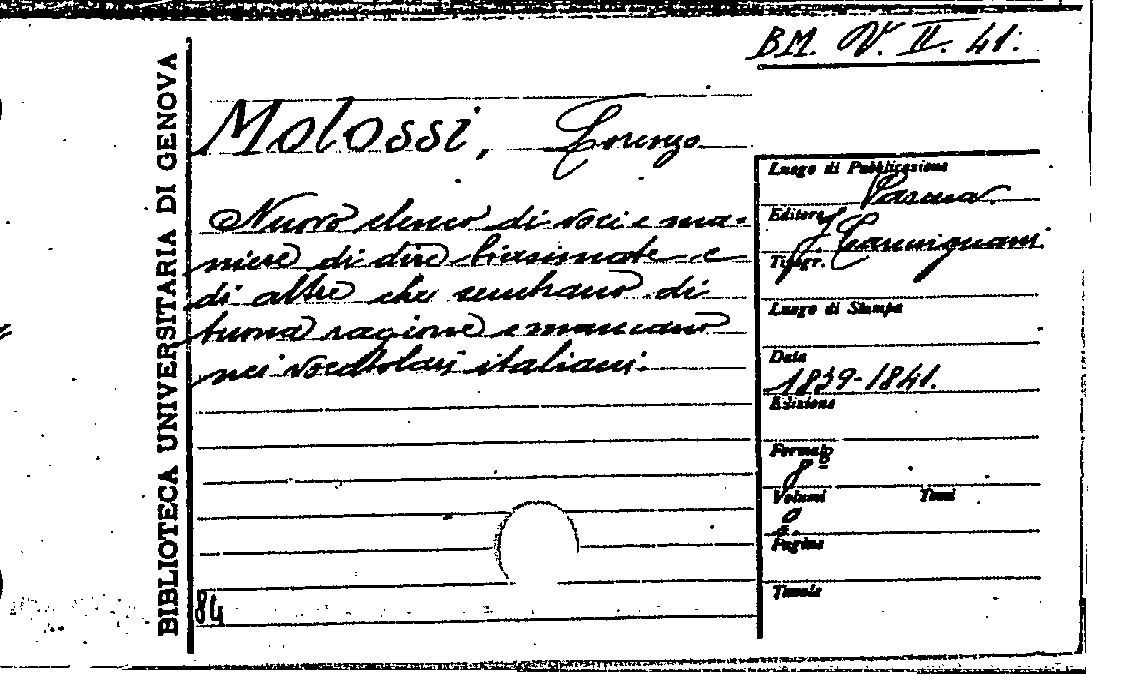 BM. V. II. 41.
BIBLIOTECA UNIVERSITARIA DI GENOVA
Molossi, Lorenzo
Nuovo elenco di voci e ma-
niere di dire biasimate e
di altre che sembrano di
buona ragione e mancano
nei vocabolari italiani.
84
Luogo di Pubblicazione
Parma.
Editore
Carmignani.
Tipogr.
Luogo di Stampa
Data
1839-1841.
Edizione
Formato
8º
Volumi Tomi
Pagine
Tavole